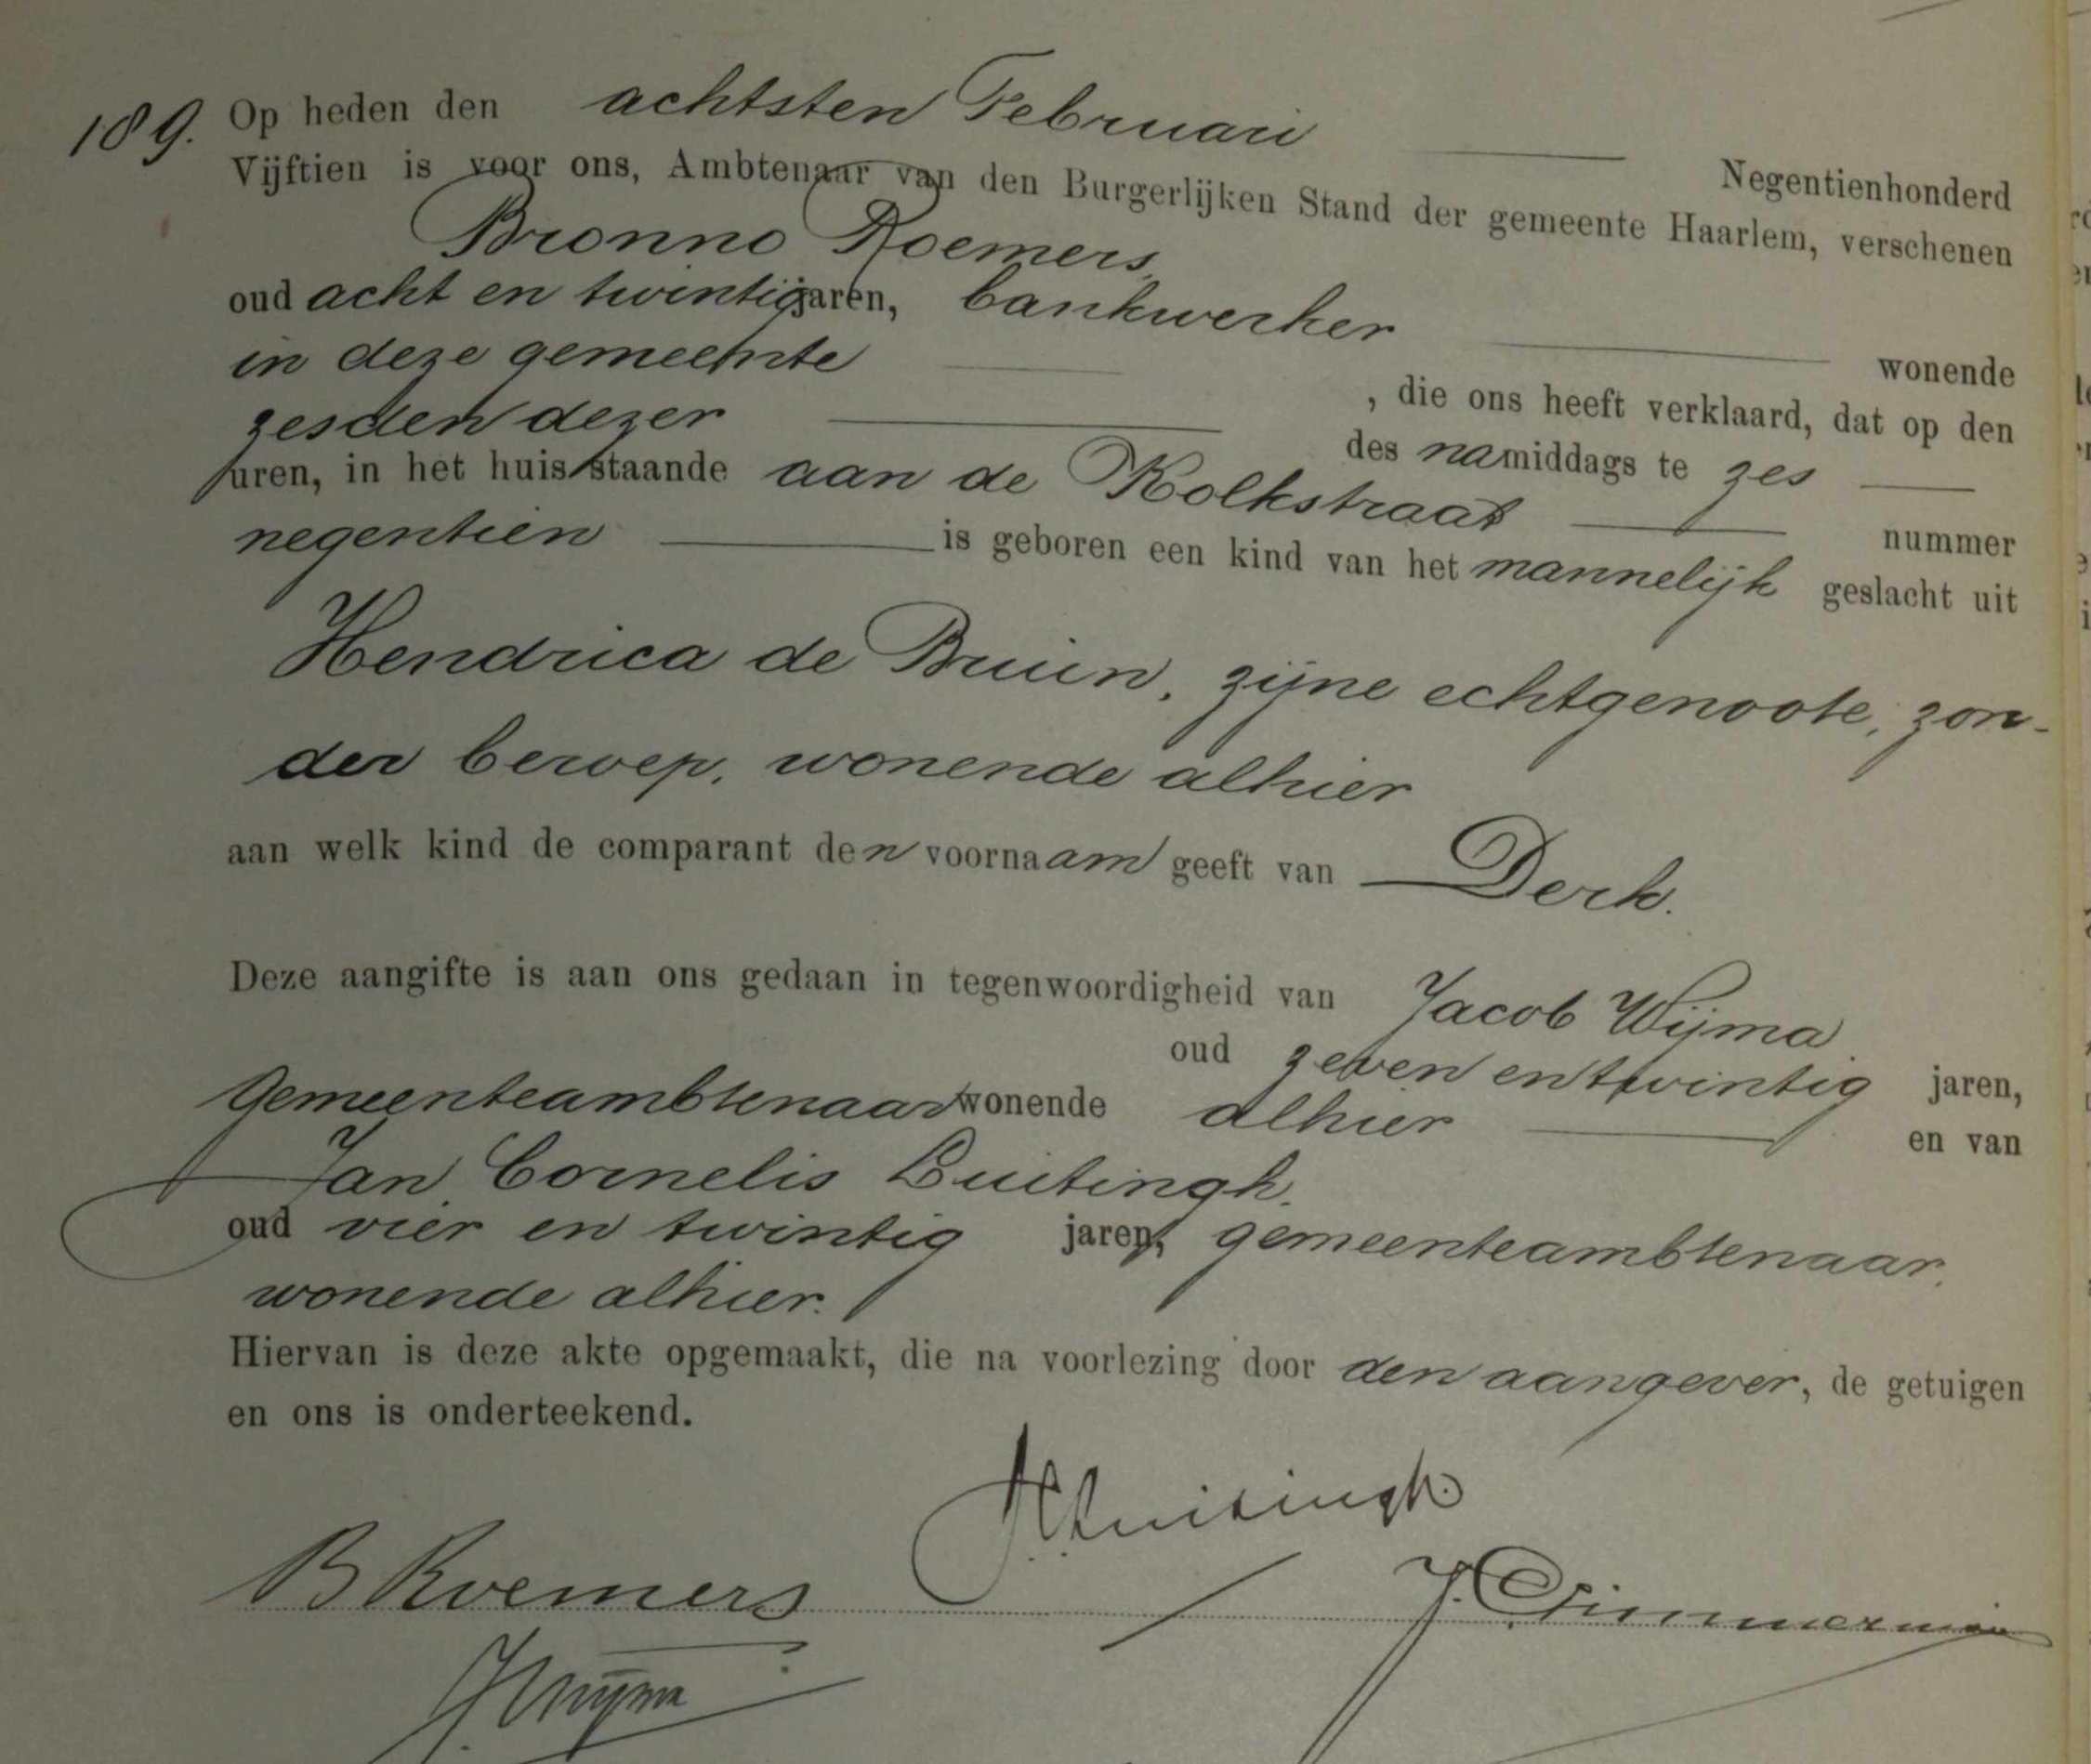 189. Op heden den achtsten Februari Negentienhonderd
Vijftien is voor ons, Ambtenaar van den Burgerlijken Stand der gemeente Haarlem, verschenen
Bronno Roemers,
oud acht en twintig jaren, bankwerker wonende
in deze gemeente , die ons heeft verklaard, dat op den
zesden dezer des namiddags te zes
uren, in het huis staande aan de Kolkstraat nummer
negentien is geboren een kind van het mannelijk geslacht uit
Hendrica de Bruin, zijne echtgenoote, zon-
der beroep, wonende alhier
aan welk kind de comparant den voornaam geeft van Derk.
Deze aangifte is aan ons gedaan in tegenwoordigheid van Jacob Wijma
oud zeven en twintig jaren,
gemeenteambtenaar wonende alhier en van
Jan Cornelis Luitingh,
oud vier en twintig jaren, gemeenteambtenaar,
wonende alhier.
Hiervan is deze akte opgemaakt, die na voorlezing door den aangever, de getuigen
en ons is onderteekend.
JCLuitingh
BRoemers
JWijma